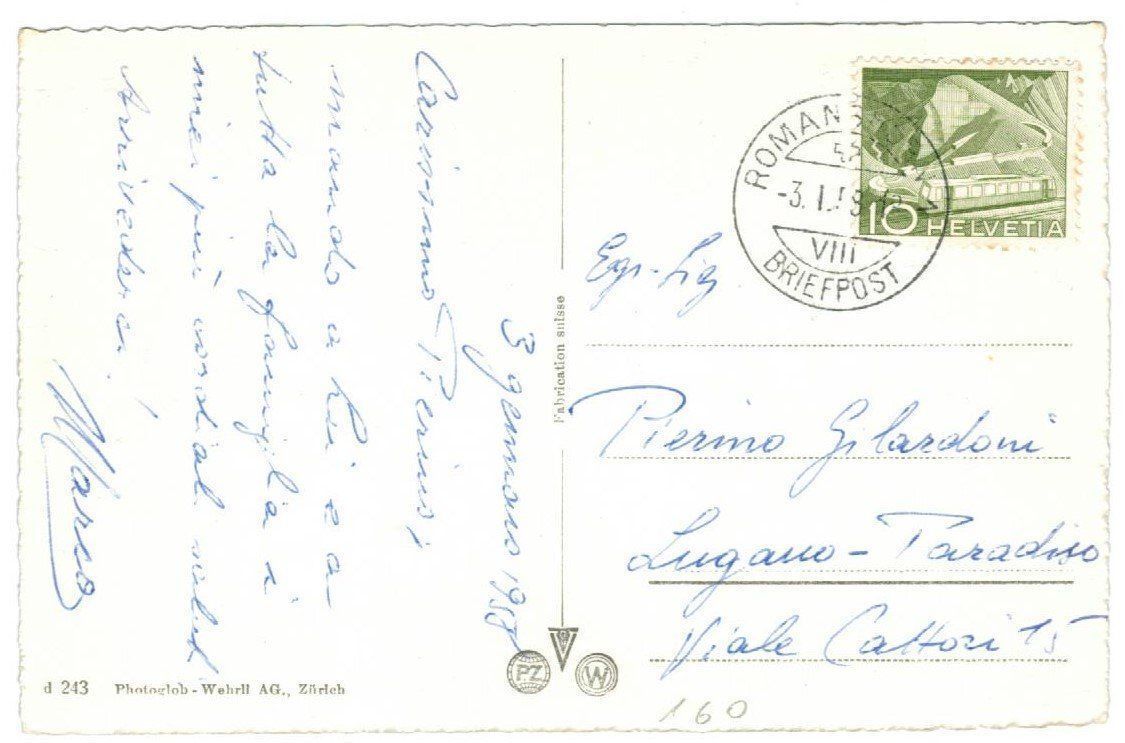 3 gennaio 1958
Carissimo Pierino,
mando a lei e a
tutta la famiglia i
miei più cordiali saluti
Arrivederci,
Marco
Fabrication suisse
10 HELVETIA
-3. I. 58
VIII
BRIEFPOST
Egr. Sig
Pierino Gilardoni
Lugano - Paradiso
Viale Cattori 15
PZ
W
d 243 Photoglob - Wehrli AG., Zürich
160